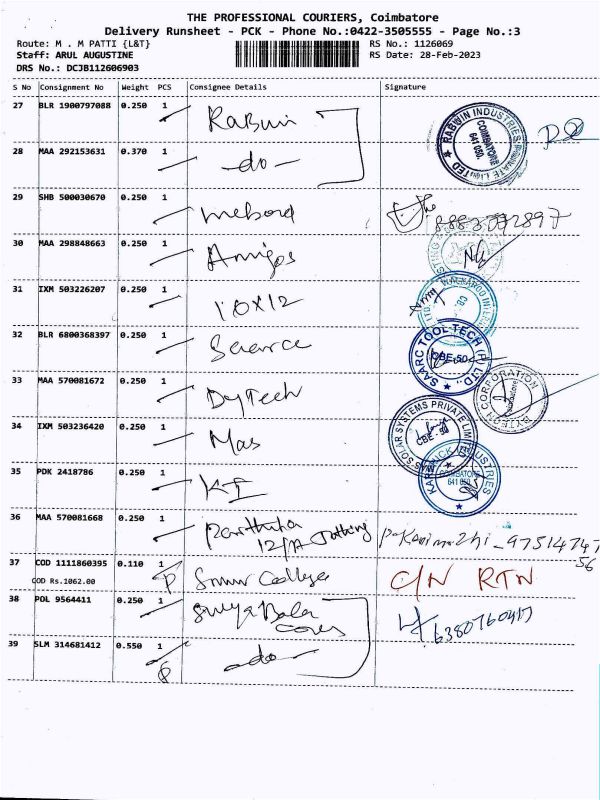 THE PROFESSIONAL COURIERS, Coimbatore
Delivery Runsheet - PCK - Phone No.:0422-3505555 - Page No.:3
Route: M . M PATTI {L&T} RS No.: 1126069
Staff: ARUL AUGUSTINE RS Date: 28-Feb-2023
DRS No.: DCJB112606903
S No Consignment No Weight PCS Consignee Details Signature
27 BLR 1900797088 0.250 1 Rabwin
RABWIN INDUSTRIES PRIVATE LIMITED
COIMBATORE
641 050.
28 MAA 292153631 0.370 1 -do-
29 SHB 500030670 0.250 1
30 MAA 298848663 0.250 1 Amigos
31 IXM 503226207 0.250 1 10x12
32 BLR 6800368397 0.250 1
SAARC TOOL TECH (P) LTD.,
CBE-50
33 MAA 570081672 0.250 1 DyTech
DYTECH CORPORATION
34 IXM 503236420 0.250 1 Mas
SOLAR SYSTEMS PRIVATE LIMITED
CBE-50
35 PDK 2418786 0.250 1 KI
INDUSTRIES
COIMBATORE
641 050.
36 MAA 570081668 0.250 1
37 COD 1111860395 0.110 1 P College C/N RTN
COD Rs.1062.00
38 POL 9564411 0.250 1 Surya Bala
39 SLM 314681412 0.550 1 -do-
P